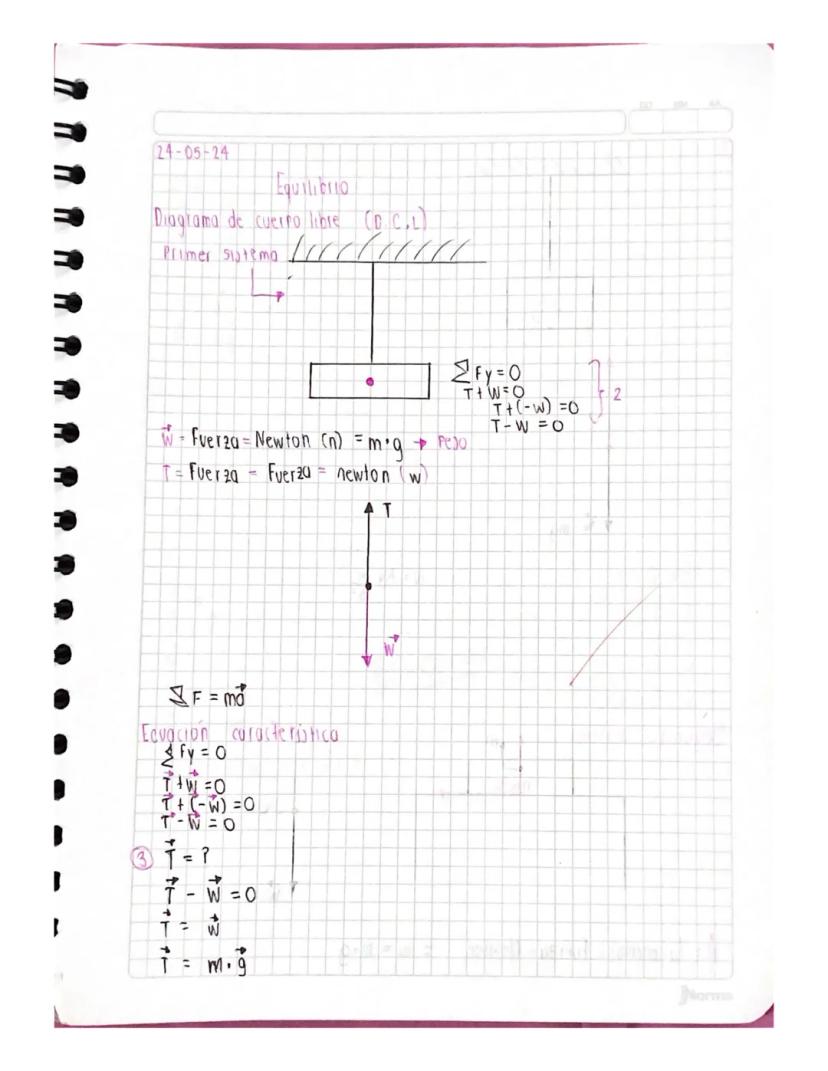 24-05-24
Equilibrio
Diagrama de cuerpo libre (D.C.L)
Primer sistema
∑Fy = 0
T+W=0
T+(-W) =0
T-W = 0
2
W⃗ = Fuerza = Newton (n) = m·g → Peso
T = Fuerza = Fuerza = newton (w)
T
W⃗
∑F = ma⃗
Ecuación característica
∑fy = 0
T⃗+W⃗ =0
T⃗+(-W⃗) =0
T⃗-W⃗ =0
3 T⃗ = ?
T⃗ - W⃗ =0
T⃗ = W⃗
T⃗ = m·g⃗
Norma